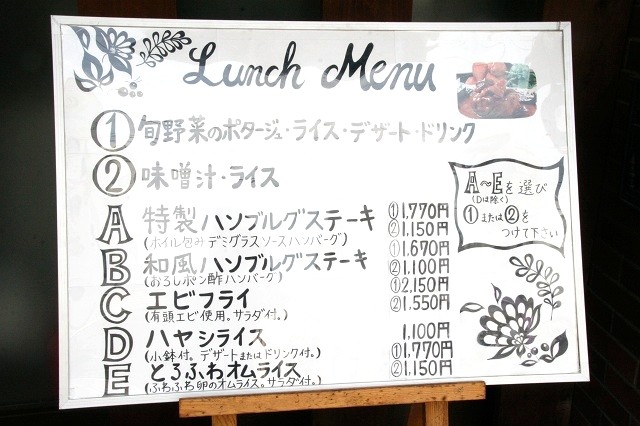 Lunch Menu
① 旬野菜のポタージュ・ライス・デザート・ドリンク
② 味噌汁・ライス
A〜Eを選び
(Dは除く)
①または②を
つけて下さい
A 特製ハンブルグステーキ ①1,770円
(ホイル包みデミグラスソースハンバーグ) ②1,150円
B 和風ハンブルグステーキ ①1,670円
(おろしポン酢ハンバーグ) ②1,100円
C エビフライ ①2,150円
(有頭エビ使用。サラダ付。) ②1,550円
D ハヤシライス 1,100円
(小鉢付。デザートまたはドリンク付。)
E とろふわオムライス ①1,770円
(ふわふわ卵のオムライス。サラダ付。) ②1,150円